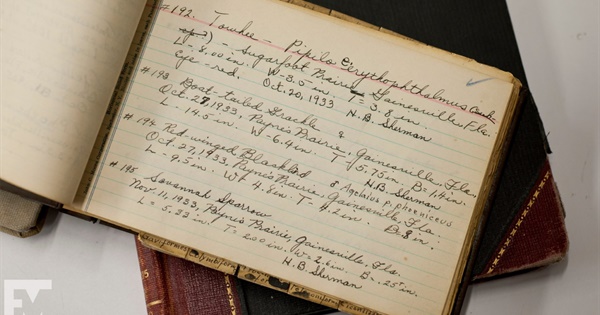 #192. Towhee - Pipilo Erythophthalmus
- Sugarfoot Prairie, Gainesville, Fla.
L - 8.00 in. W - 3.5 in. T = 3.8 in.
eye - red. Oct. 20, 1933 H.B. Sherman
#193 Boat-tailed Grackle
Oct. 27, 1933, Payne's Prairie, Gainesville, Fla.
L - 14.5 in. W - 6.4 in. T - 5.75 in. B = 1.4 in.
H.B. Sherman
#194 Red-winged Blackbird ♂ Agelaius p. phoeniceus
Oct. 27, 1933, Payne's Prairie, Gainesville, Fla.
L - 9.5 in. W = 4.8 in. T - 4.2 in.
#195 Savannah Sparrow
Nov. 11, 1933, Payne's Prairie, Gainesville, Fla.
L = 5.22 in. T = 2.00 in. W = 2.6 in. B = .25 in.
H.B. Sherman